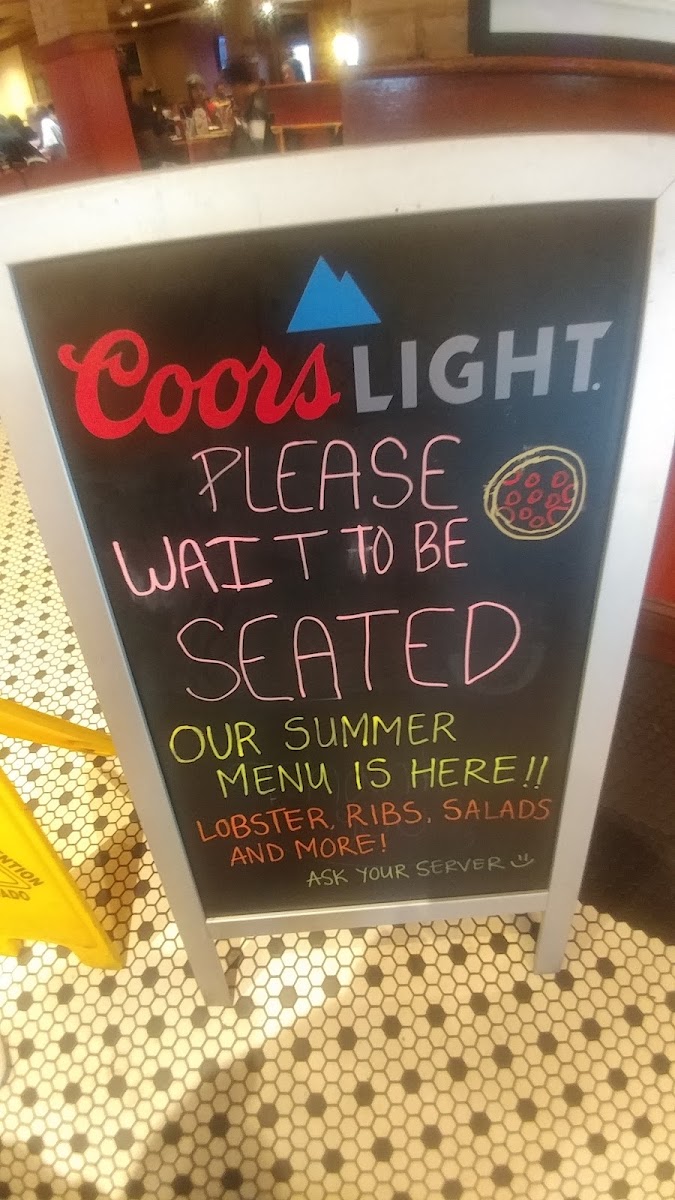 Coors LIGHT.
PLEASE
WAIT TO BE
SEATED
OUR SUMMER
MENU IS HERE!!
LOBSTER, RIBS, SALADS
AND MORE!
ASK YOUR SERVER